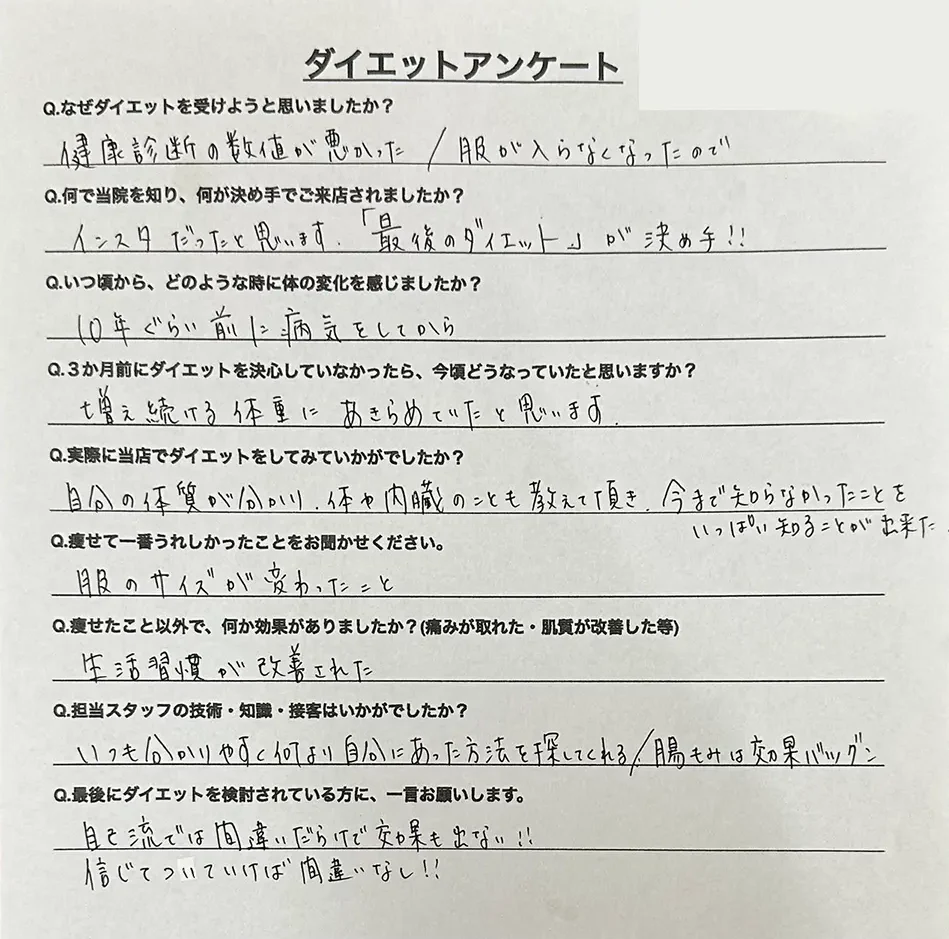 ダイエットアンケート
Q.なぜダイエットを受けようと思いましたか？
健康診断の数値が悪かった / 服が入らなくなったので
Q.何で当院を知り、何が決め手でご来店されましたか？
インスタだったと思います.「最後のダイエット」が決め手!!
Q.いつ頃から、どのような時に体の変化を感じましたか？
10年ぐらい前に病気をしてから
Q.３か月前にダイエットを決心していなかったら、今頃どうなっていたと思いますか？
増え続ける体重にあきらめていたと思います.
Q.実際に当店でダイエットをしてみていかがでしたか？
自分の体質が分かり.体や内臓のことも教えて頂き.今まで知らなかったことを
いっぱい知ることが出来た
Q.痩せて一番うれしかったことをお聞かせください。
服のサイズが変わったこと
Q.痩せたこと以外で、何か効果がありましたか？(痛みが取れた・肌質が改善した等)
生活習慣が改善された
Q.担当スタッフの技術・知識・接客はいかがでしたか？
いつも分かりやすく何より自分にあった方法を探してくれる / 腸もみは効果バツグン
Q.最後にダイエットを検討されている方に、一言お願いします。
自己流では間違いだらけで効果も出ない!!
信じてついていけば間違いなし!!